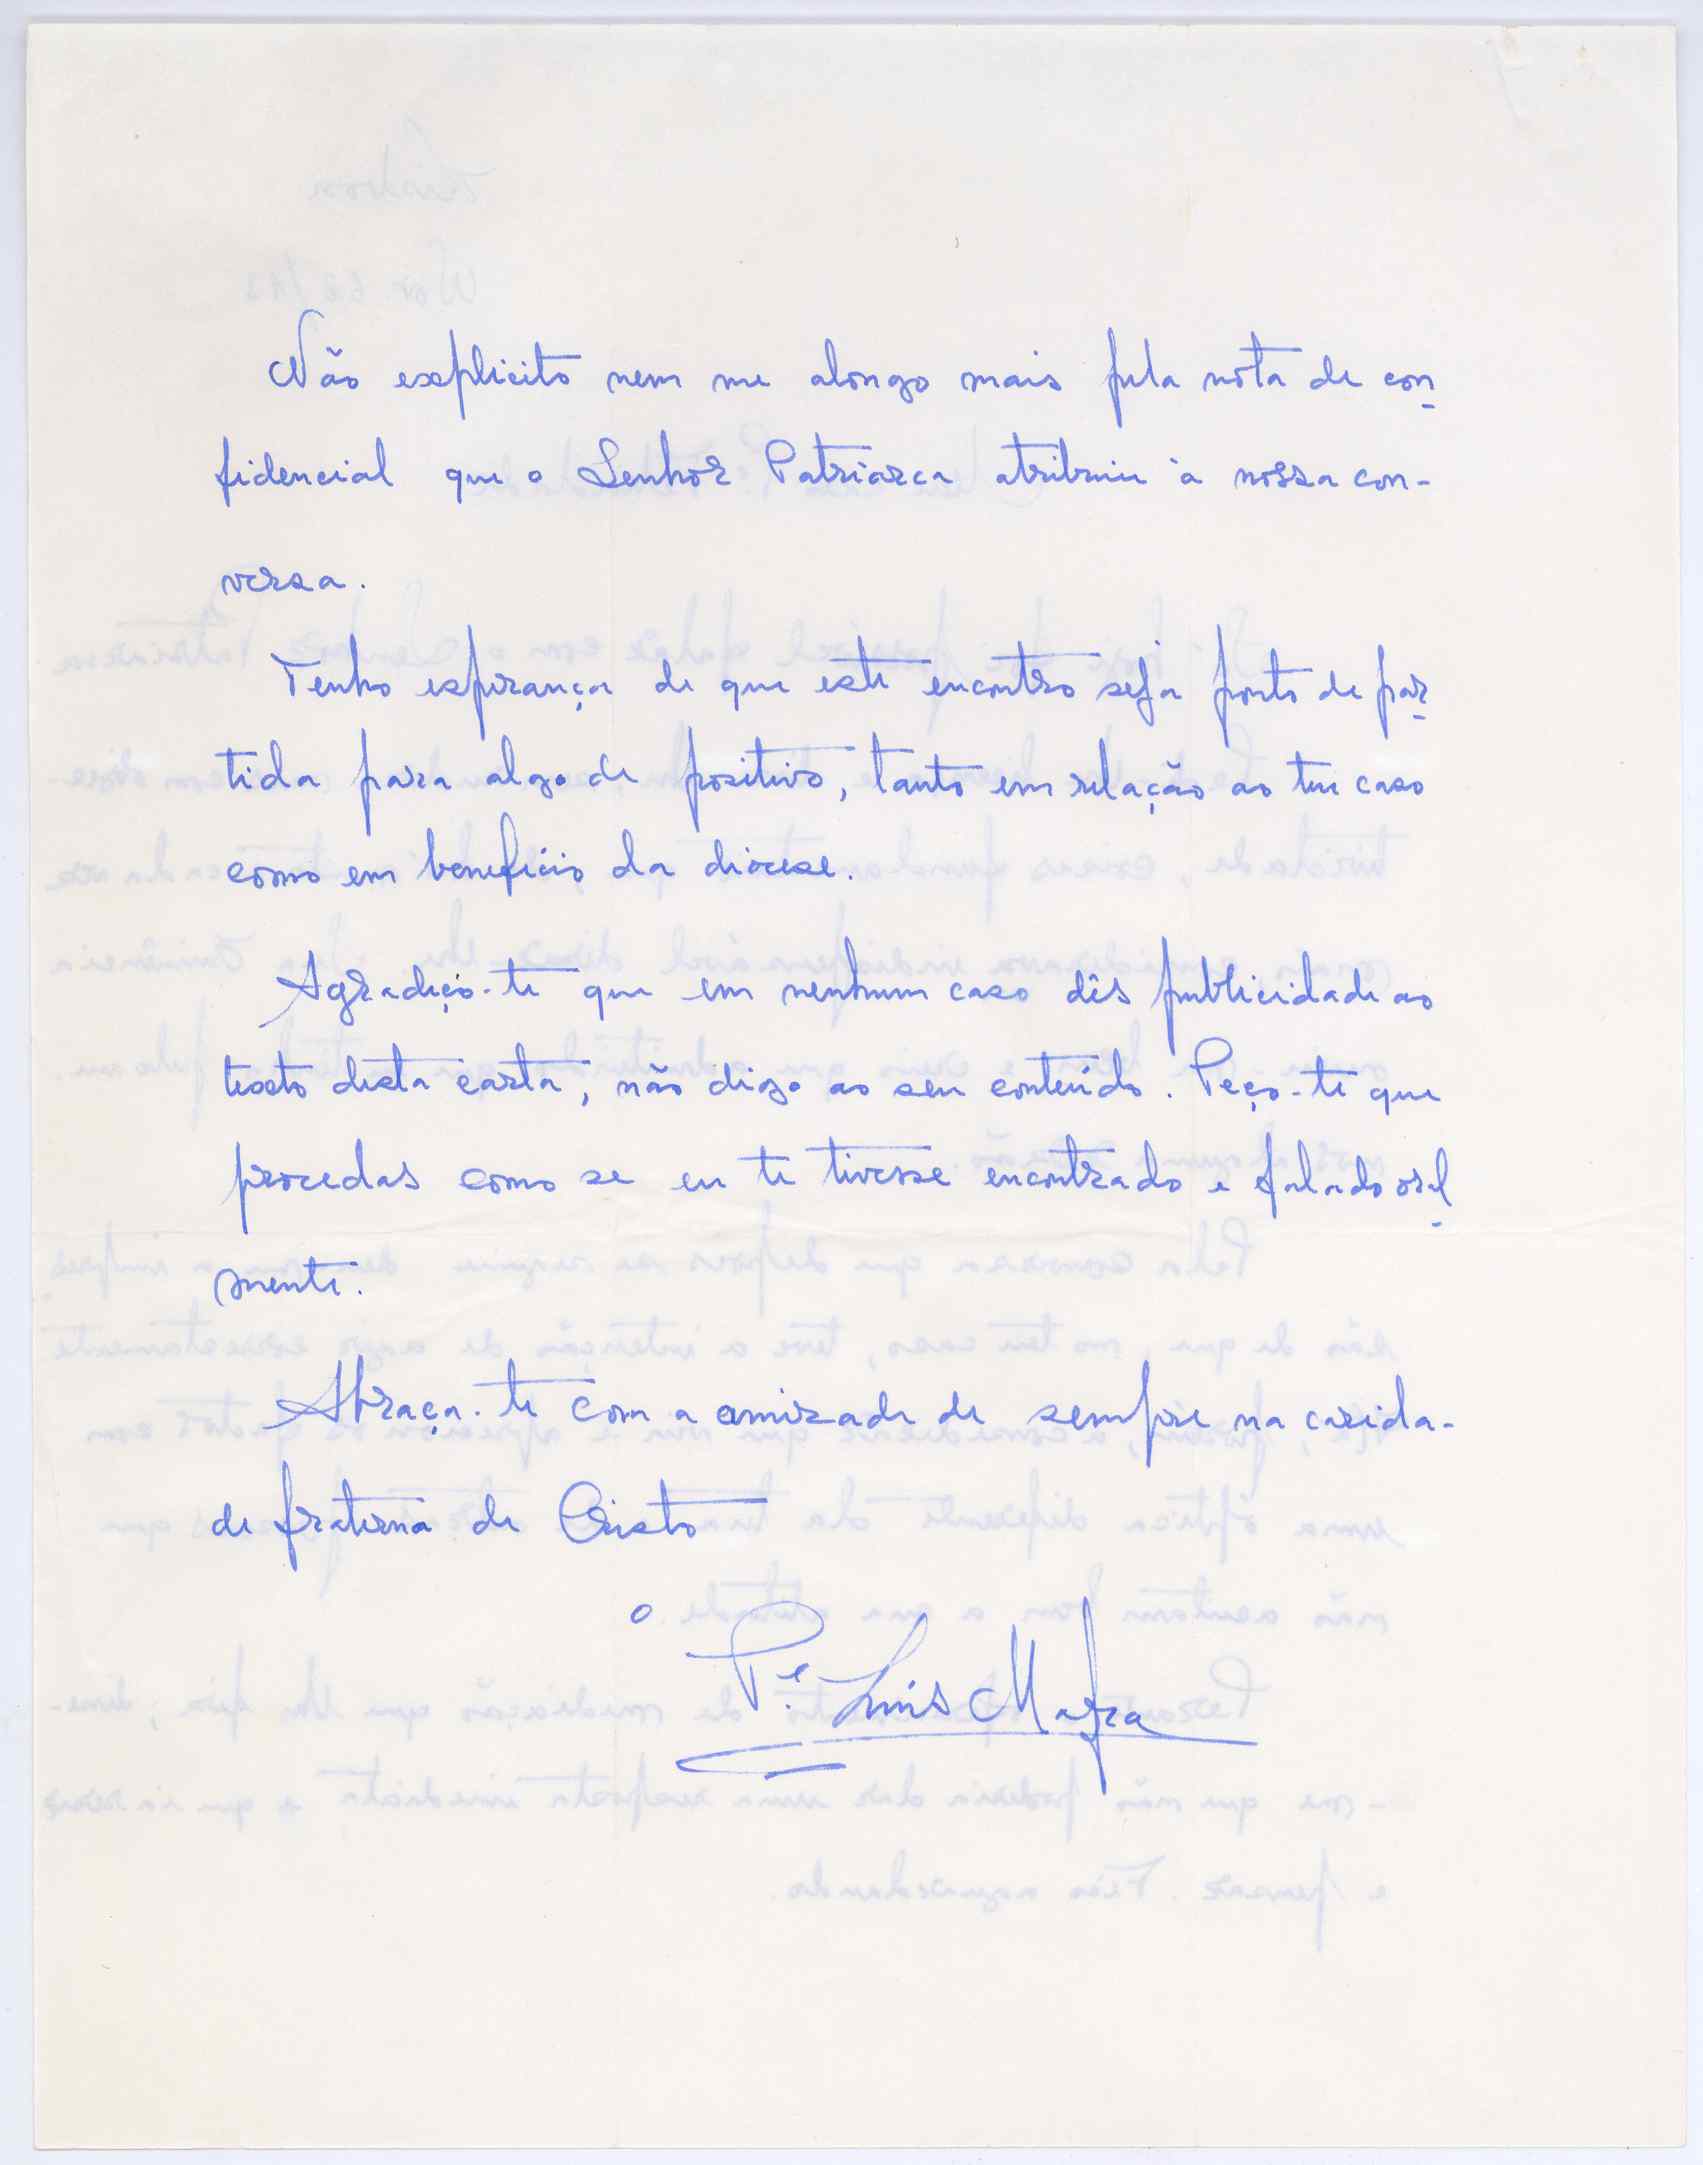 Não explicito nem me alongo mais pela nota de con-
fidencial que o Senhor Patriarca atribuiu à nossa con-
versa.
Tenho esperança de que este encontro seja ponto de par-
tida para algo de positivo, tanto em relação ao teu caso
como em benefício da diocese.
Agradeço-te que em nenhum caso dês publicidade ao
texto desta carta, não digo ao seu conteúdo. Peço-te que
procedas como se eu te tivesse encontrado e falado oral-
mente.
Abraça-te com a amizade de sempre na carida-
de fraterna de Cristo
o Pe. Luís Mafra